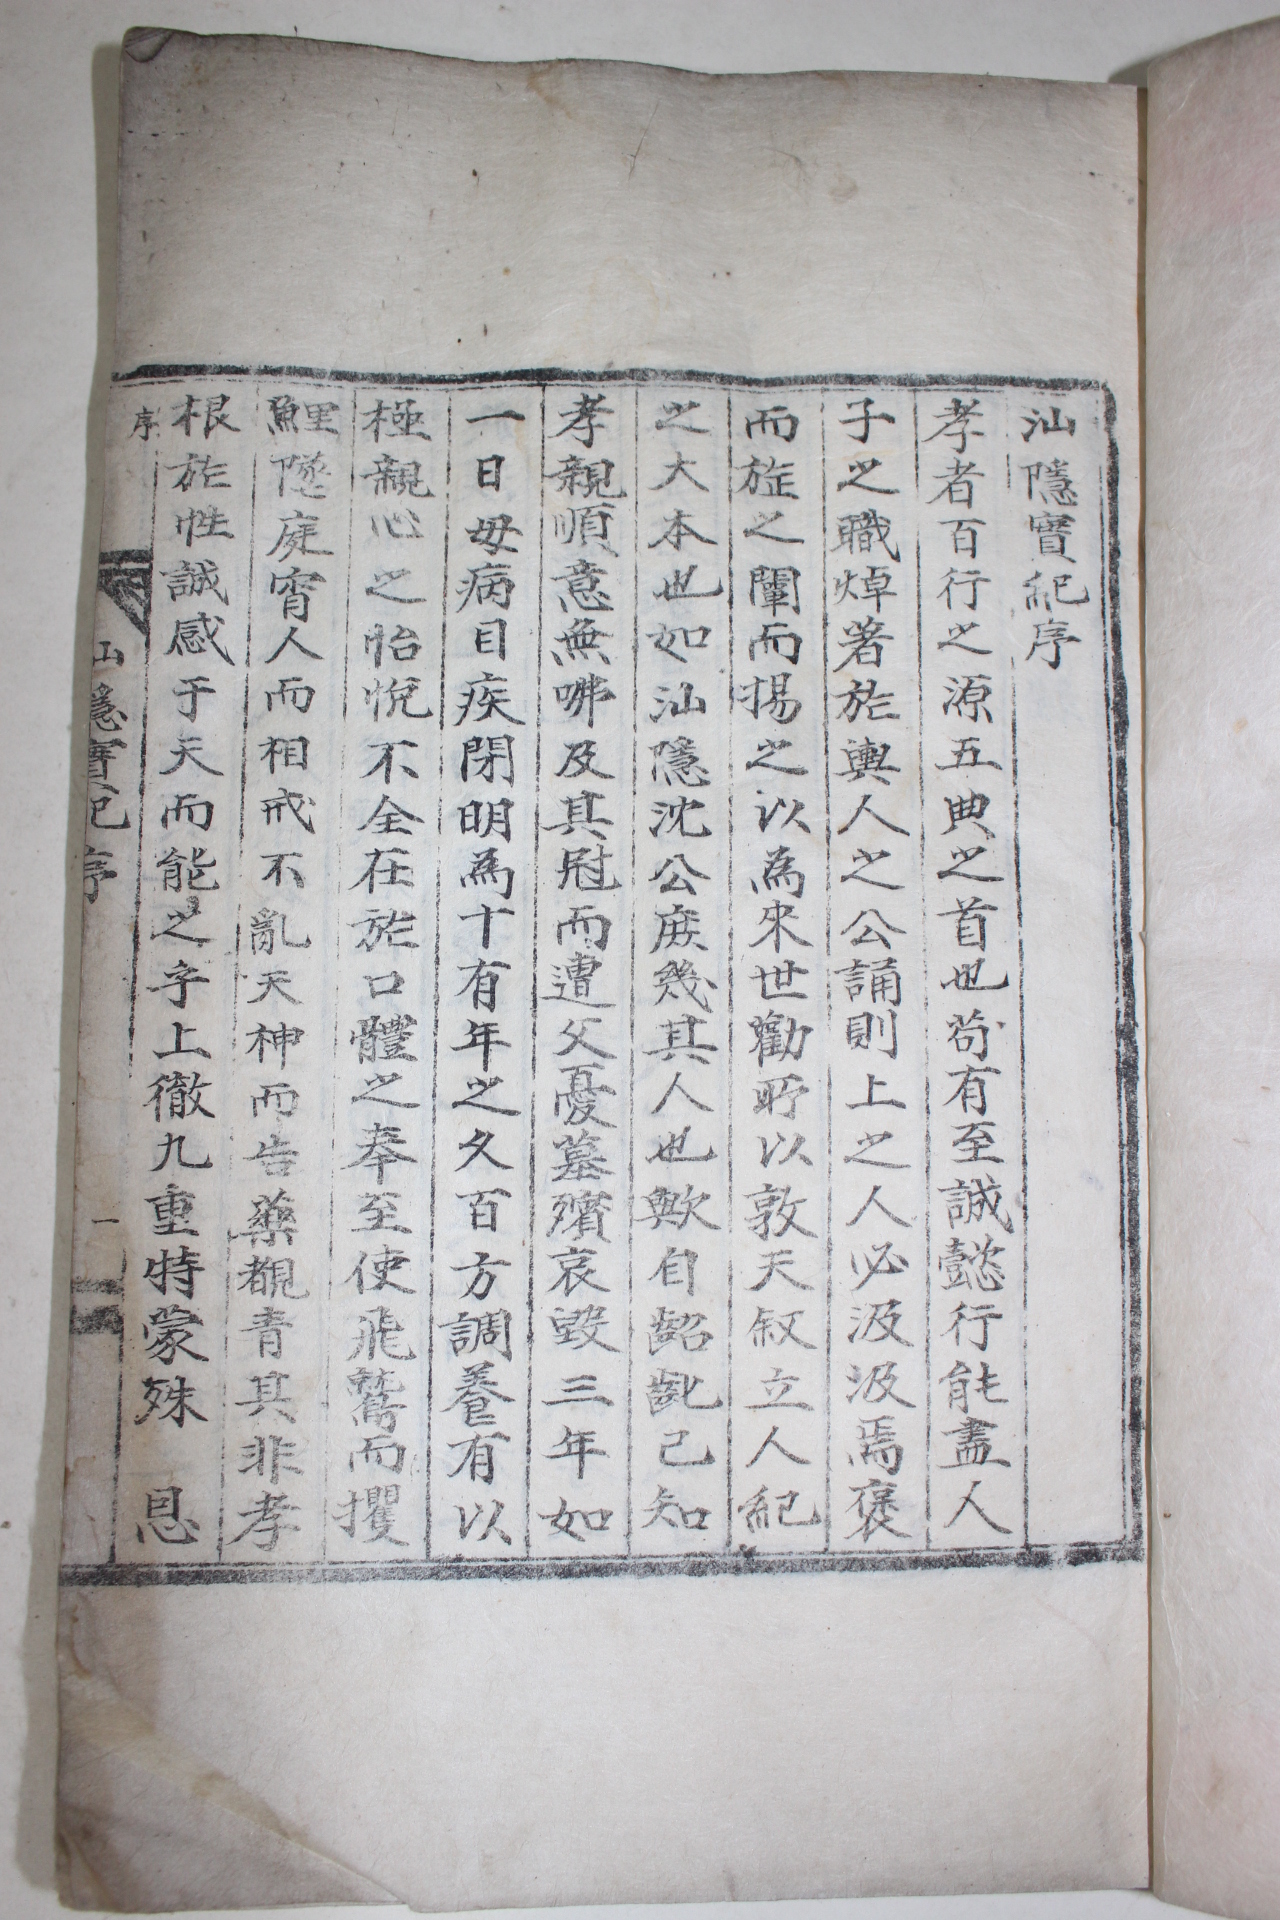 汕隱實紀序
孝者百行之源五典之首也苟有至誠懿行能盡人
子之職焯著於輿人之公誦則上之人必汲汲焉褒
而旌之闡而揚之以為來世勸所以敦天叙立人紀
之大本也如汕隱沈公庻幾其人也歟自齠齔已知
孝親順意無咈及其冠而遭父憂墓殯哀毀三年如
一日母病目疾閉明為十有年之久百方調養有以
極親心之怡悅不全在於口體之奉至使飛鷲而攫
鯉墜庭宵人而相戒不亂天神而告藥覩青其非孝
根於性誠感于天而能之乎上徹九重特蒙殊 恩
序
汕隱實紀序
一